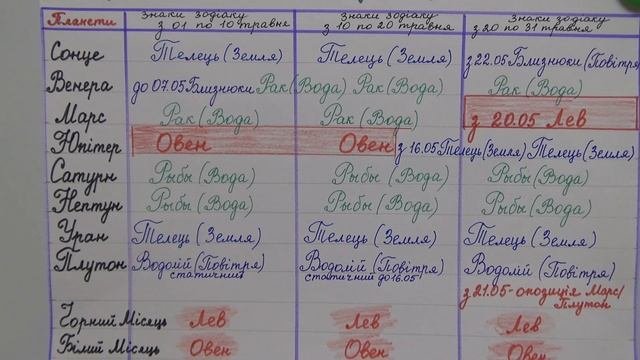 Планети Знаки зодіаку з 01 по 10 травня Знаки зодіаку з 10 по 20 травня Знаки зодіаку з 20 по 31 травня
Сонце Телець (Земля) Телець (Земля) з 22.05 Близнюки (Повітря
Венера до 07.05 Близнюки Рак (Вода) Рак (Вода) Рак (Вода)
Марс Рак (Вода) Рак (Вода) з 20.05 Лев
Юпітер Овен Овен з 16.05 Телець (Земля) Телець (Земля)
Сатурн Рыбы (Вода) Рыбы (Вода) Рыбы (Вода)
Нептун Рыбы (Вода) Рыбы (Вода) Рыбы (Вода)
Уран Телець (Земля) Телець (Земля) Телець (Земля)
Плутон Водолій (Повітря) статичний Водолій (Повітря) статичний до 16.05 Водолій (Повітря)
з 21.05 - опозиція Марс/Плутон
Чорний Місяць Лев Лев Лев
Білий Місяць Овен Овен Овен